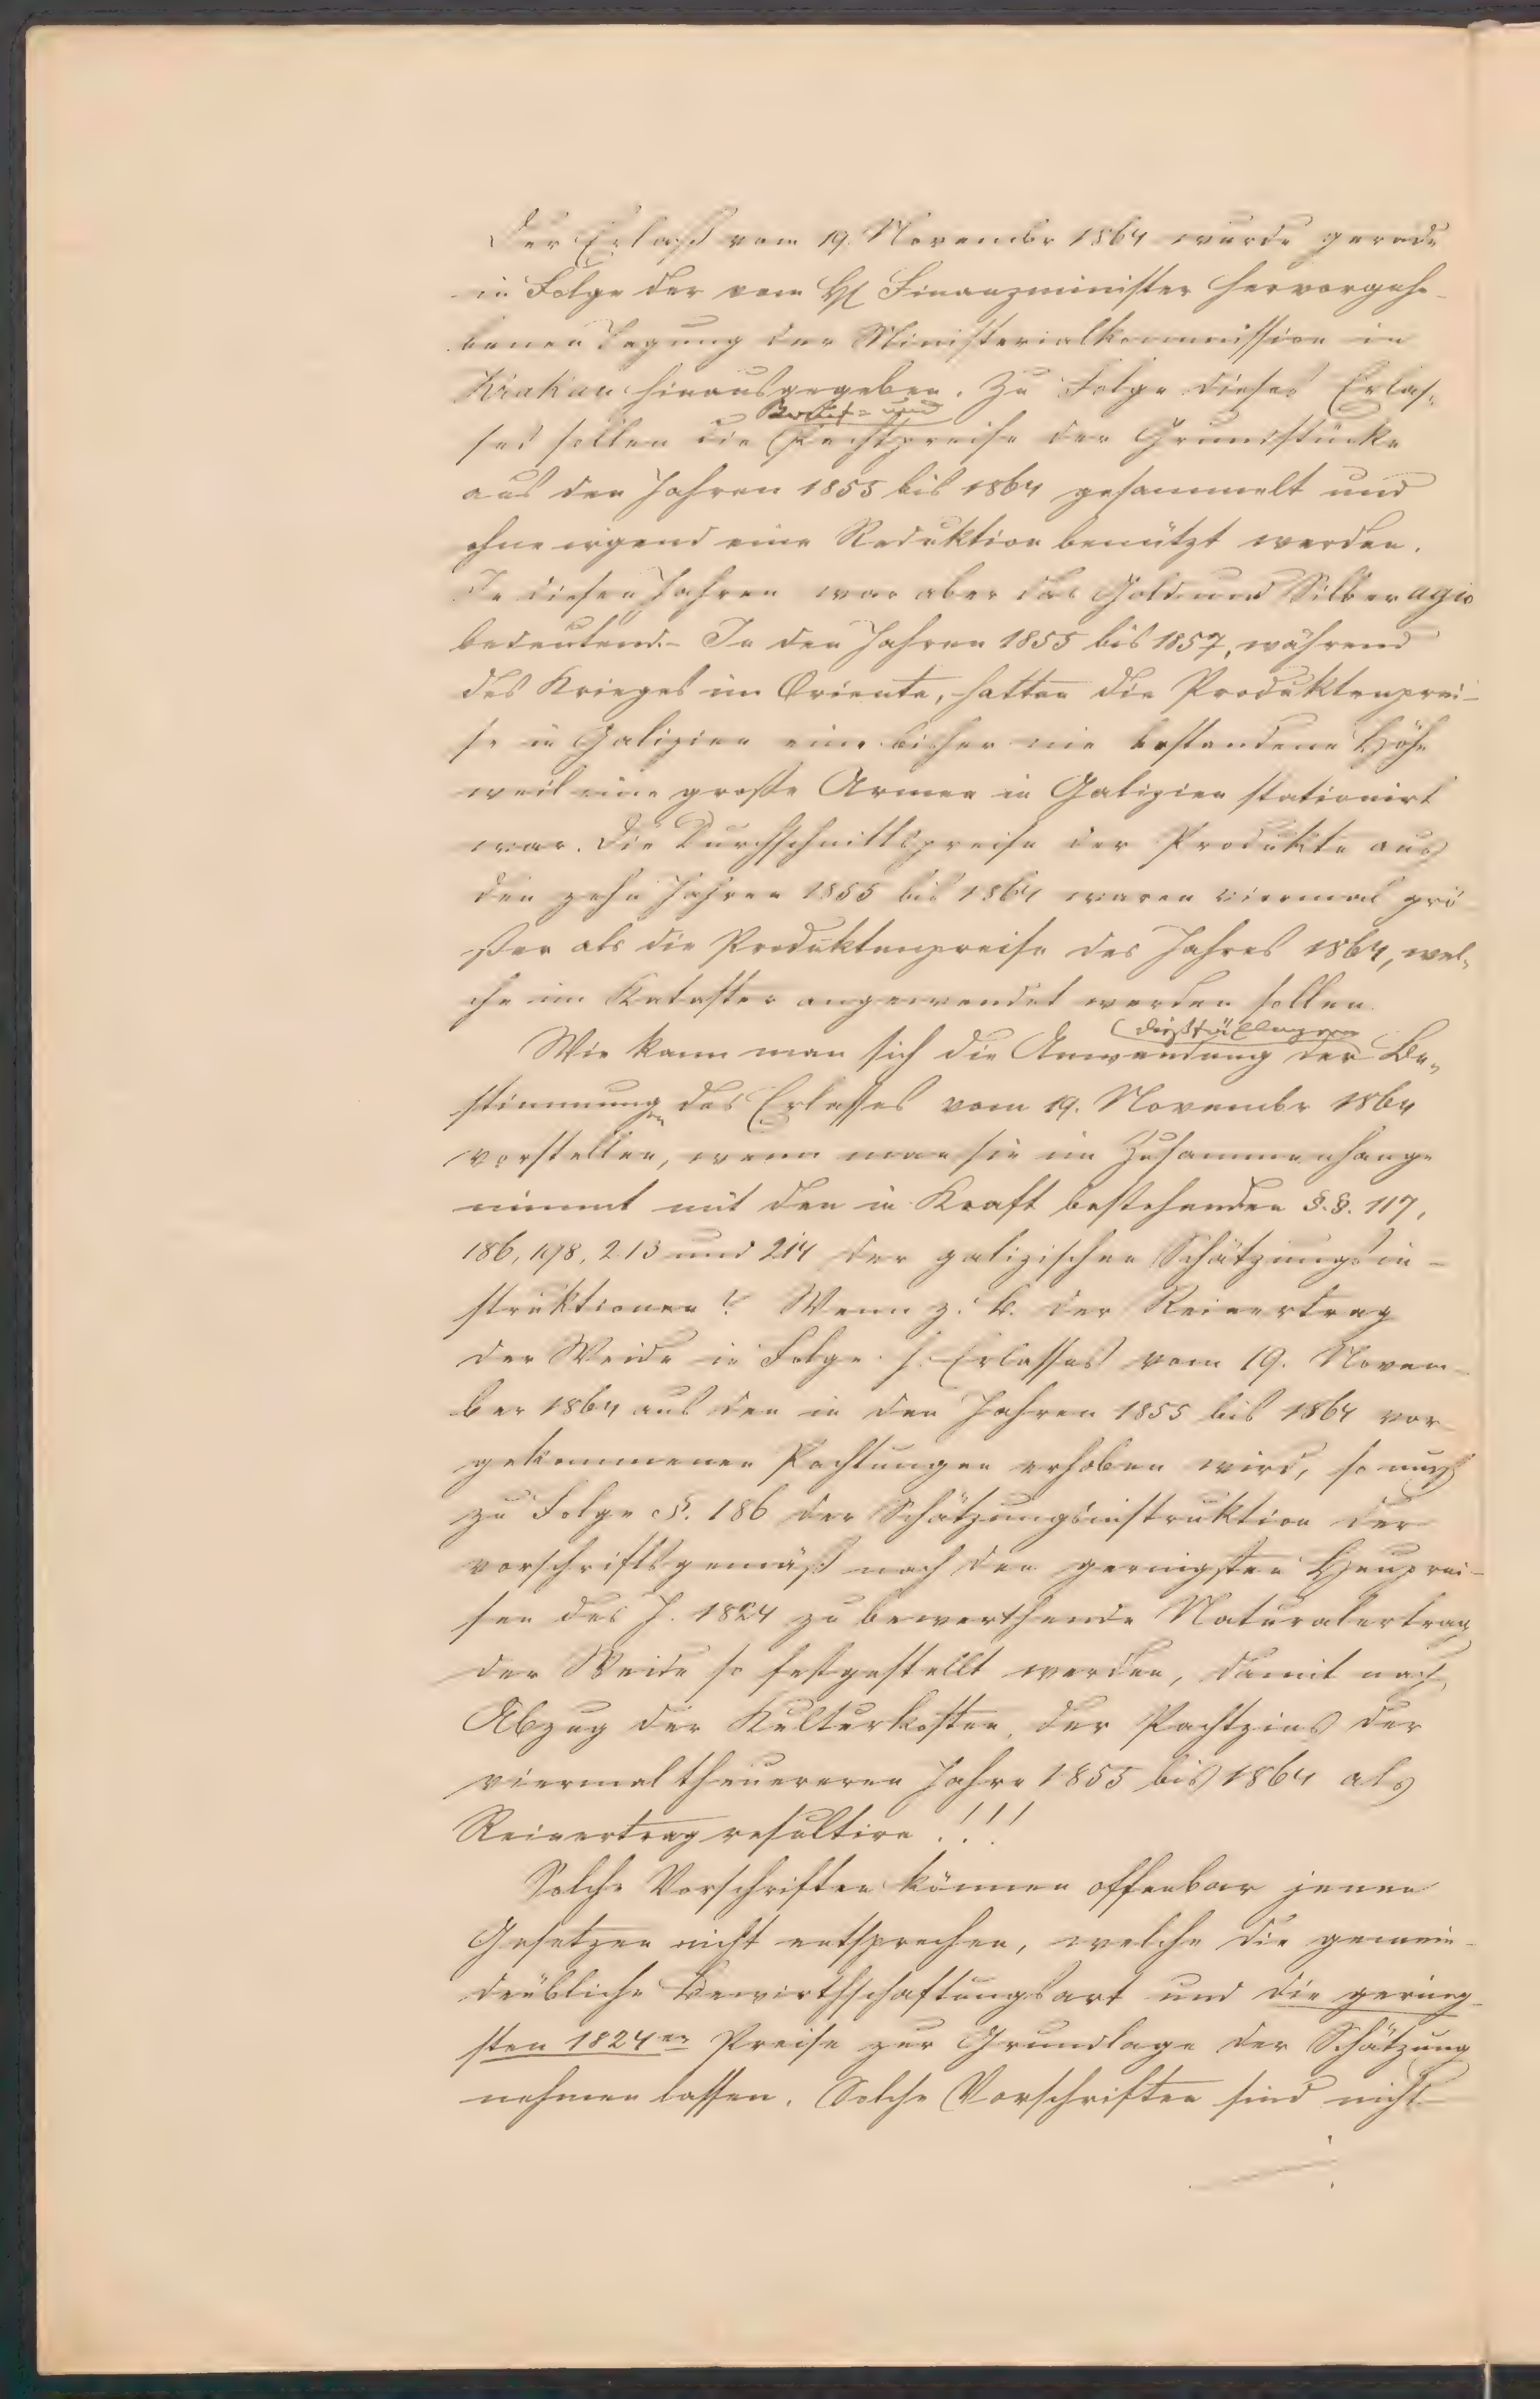 Der Erlaß vom 19. Novembr 1864 wurde gerade
in Folge der vom H Finanzminister hervorgeho-
benen Tagung der Ministerialkommission in
Krakau hinausgegeben. Zu Folge dieses Erlas-
Verkaufs- und
ses sollen die Pachtpreise der Grundstücke
aus den Jahren 1855 bis 1864 gesammelt und
ohne irgend eine Reduktion benützt werden.
In diesen Jahren war aber das Gold und Silber agio
bedeutend.- In den Jahren 1855 bis 1857, während
des Krieges im Oriente, hatten die Produktenprei-
se in Galizien eine bisher nie bestandene Höhe
weil eine große Armee in Galizien stationirt
war. Die Durchschnittspreise der Produkte aus
den zehn Jahren 1855 bis 1864 waren viermal grö
ßer als die Produktenpreise des Jahres 1864, wel-
che im Kataster angewendet werden sollen.
Wie kann man sich die Anwendung der Be-
stimmungen des Erlasses vom 19. Novembr 1864
vorstellen, wenn man sie im Zusammenhange
nimmt mit den in Kraft bestehenden §.§. 117,
186, 198, 213 und 214 der galizischen Schätzungsin-
struktionen? Wenn z. B. der Reinertrag
der Weide in Folge h. Erlasses vom 19. Novem-
ber 1864 aus den in den Jahren 1855 bis 1864 vor
gekommenen Pachtungen erhoben wird, so muß
zu Folge §. 186 der Schätzungsinstruktion der
vorschriftsgemäß nach den geringsten Heuprei-
sen des J. 1824 zu bewerthende Naturalertrag
der Weide so festgestellt werden, damit nach
Abzug der Kulturkosten, der Pachtzins der
viermal theuereren Jahre 1855 bis 1864 als
Reinertrag resultire!!!
Solche Vorschriften können offenbar jenen
Gesetzen nicht entsprechen, welche die gemein-
deübliche Bewirthschaftungsart und die gering-
sten 1824er Preise zur Grundlage der Schätzung
nehmen lassen. Solche Vorschriften sind nicht